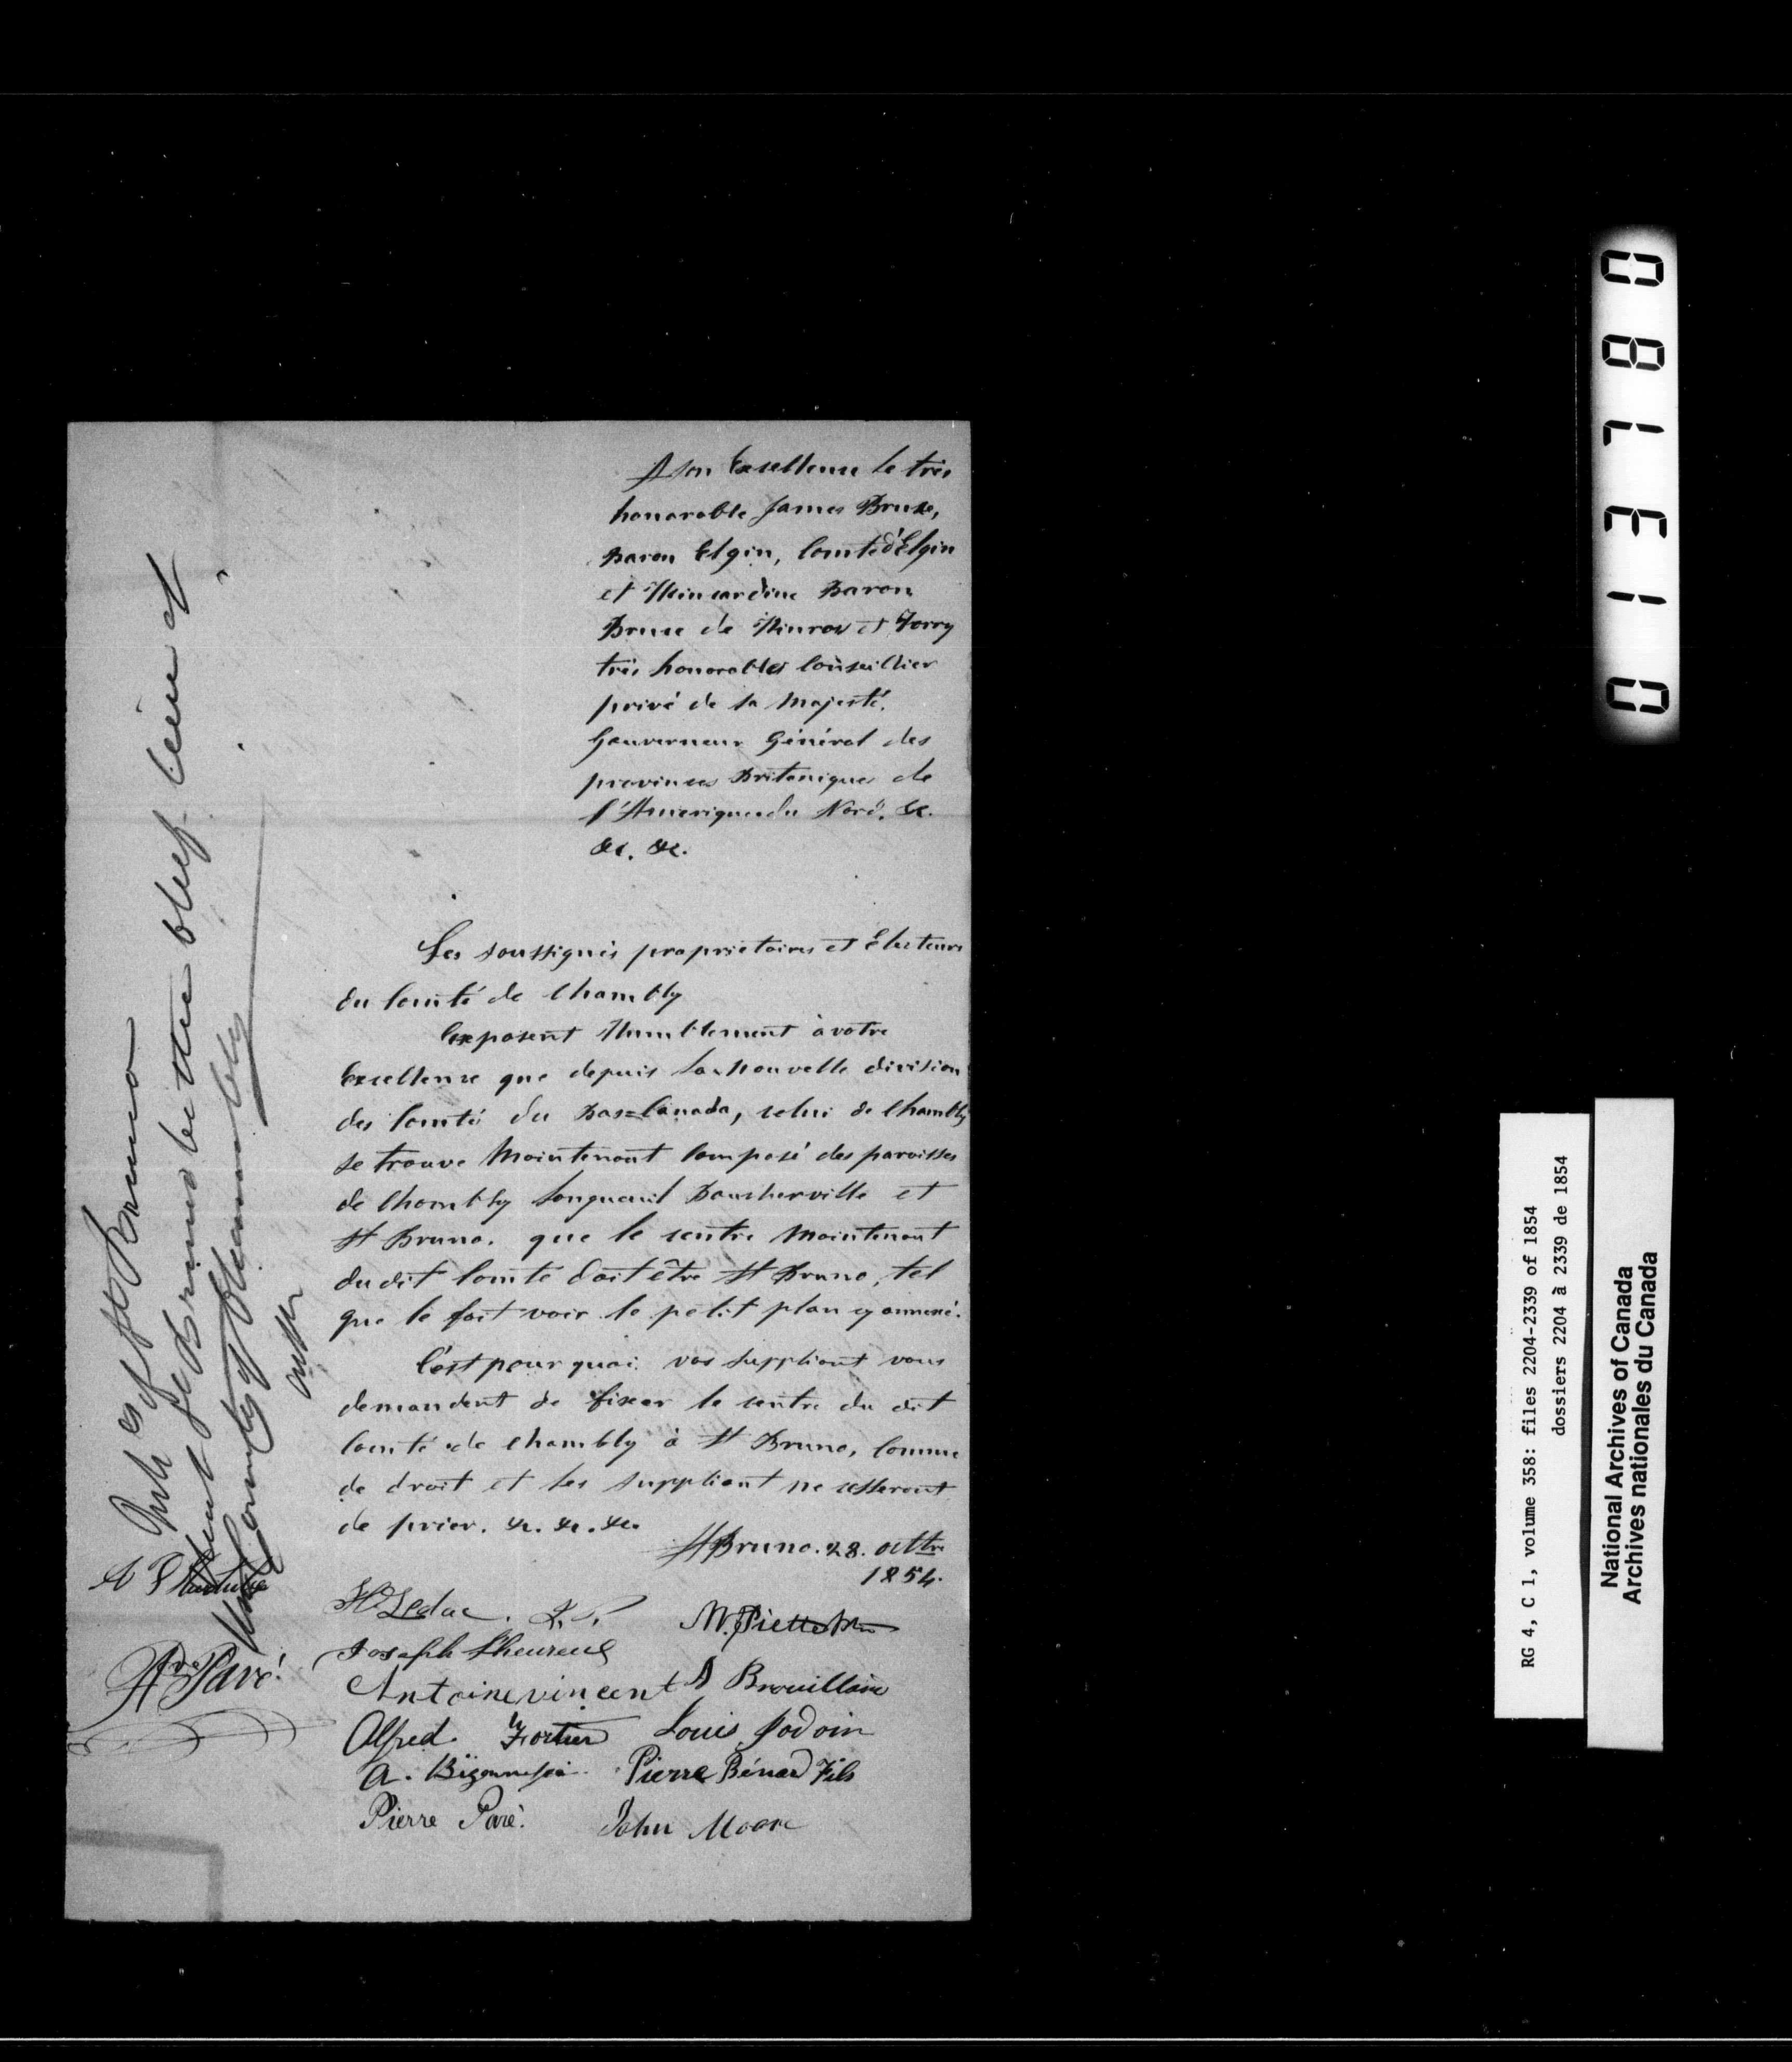 A son Excellence le très
honorable James Bruce,
Baron Elgin, Comte d'Elgin
et Kincardine Baron
Bruce de Kinross et Torry
très honorables Conseillier
privé de sa Majesté,
Gouverneur Général des
provinces Britaniques de
l'Amerique du Nord, &c.
&c. &c.
Les soussignés proprietaires et Electeurs
du Comté de Chambly
Exposent Humblement à votre
Excellence que depuis la nouvelle division
des Comté du Bas=Canada, celui de Chambly
se trouve Maintenant Composé des paroisses
de Chambly Longueuil Boucherville et
St Bruno. que le centre Maintenant
du dit Comté doit être St Bruno, tel
que le fait voir le petit plan cy annexé.
C'est pourquoi vos suppliant vous
demandent de fixer le centre du dit
Comté de Chambly à St Bruno, Comme
de droit et les suppliant ne cesseront
de prier. &c. &c. &c.
St Bruno. 28. octbre
1854.
H. Leduc.
M. Piette
Joseph Lheureux
Antoine vincent
A Brouillair
Alfred Fortier
Louis Jodoin
A.
Pierre Bénard Fils
Pierre Paré.
John Moore
Paré
St Bruno
that St Bruno be the chef lieu of
the County of Chambly
013780
RG 4, C 1, volume 358: files 2204-2339 of 1854
dossiers 2204 à 2339 de 1854
National Archives of Canada
Archives nationales du Canada